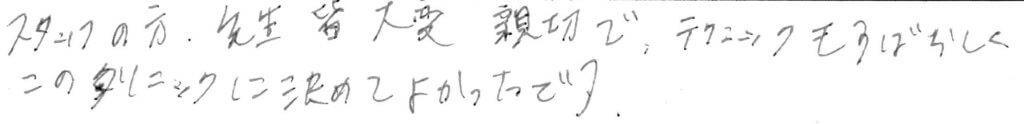 スタッフの方、先生 皆 大変 親切で、テクニックもすばらしく
このクリニックに決めてよかったです。